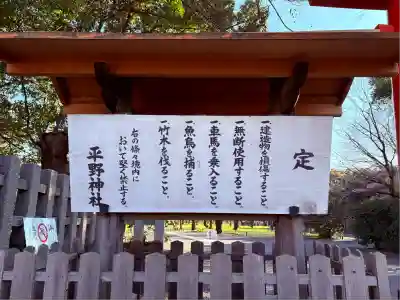 定
一、建造物を損傷すること、
一、無断使用すること、
一、車馬を乗入ること、
一、魚鳥を捕ること、
一、竹木を伐ること、
右の條々境内に
おいて堅く禁止する。
平野神社